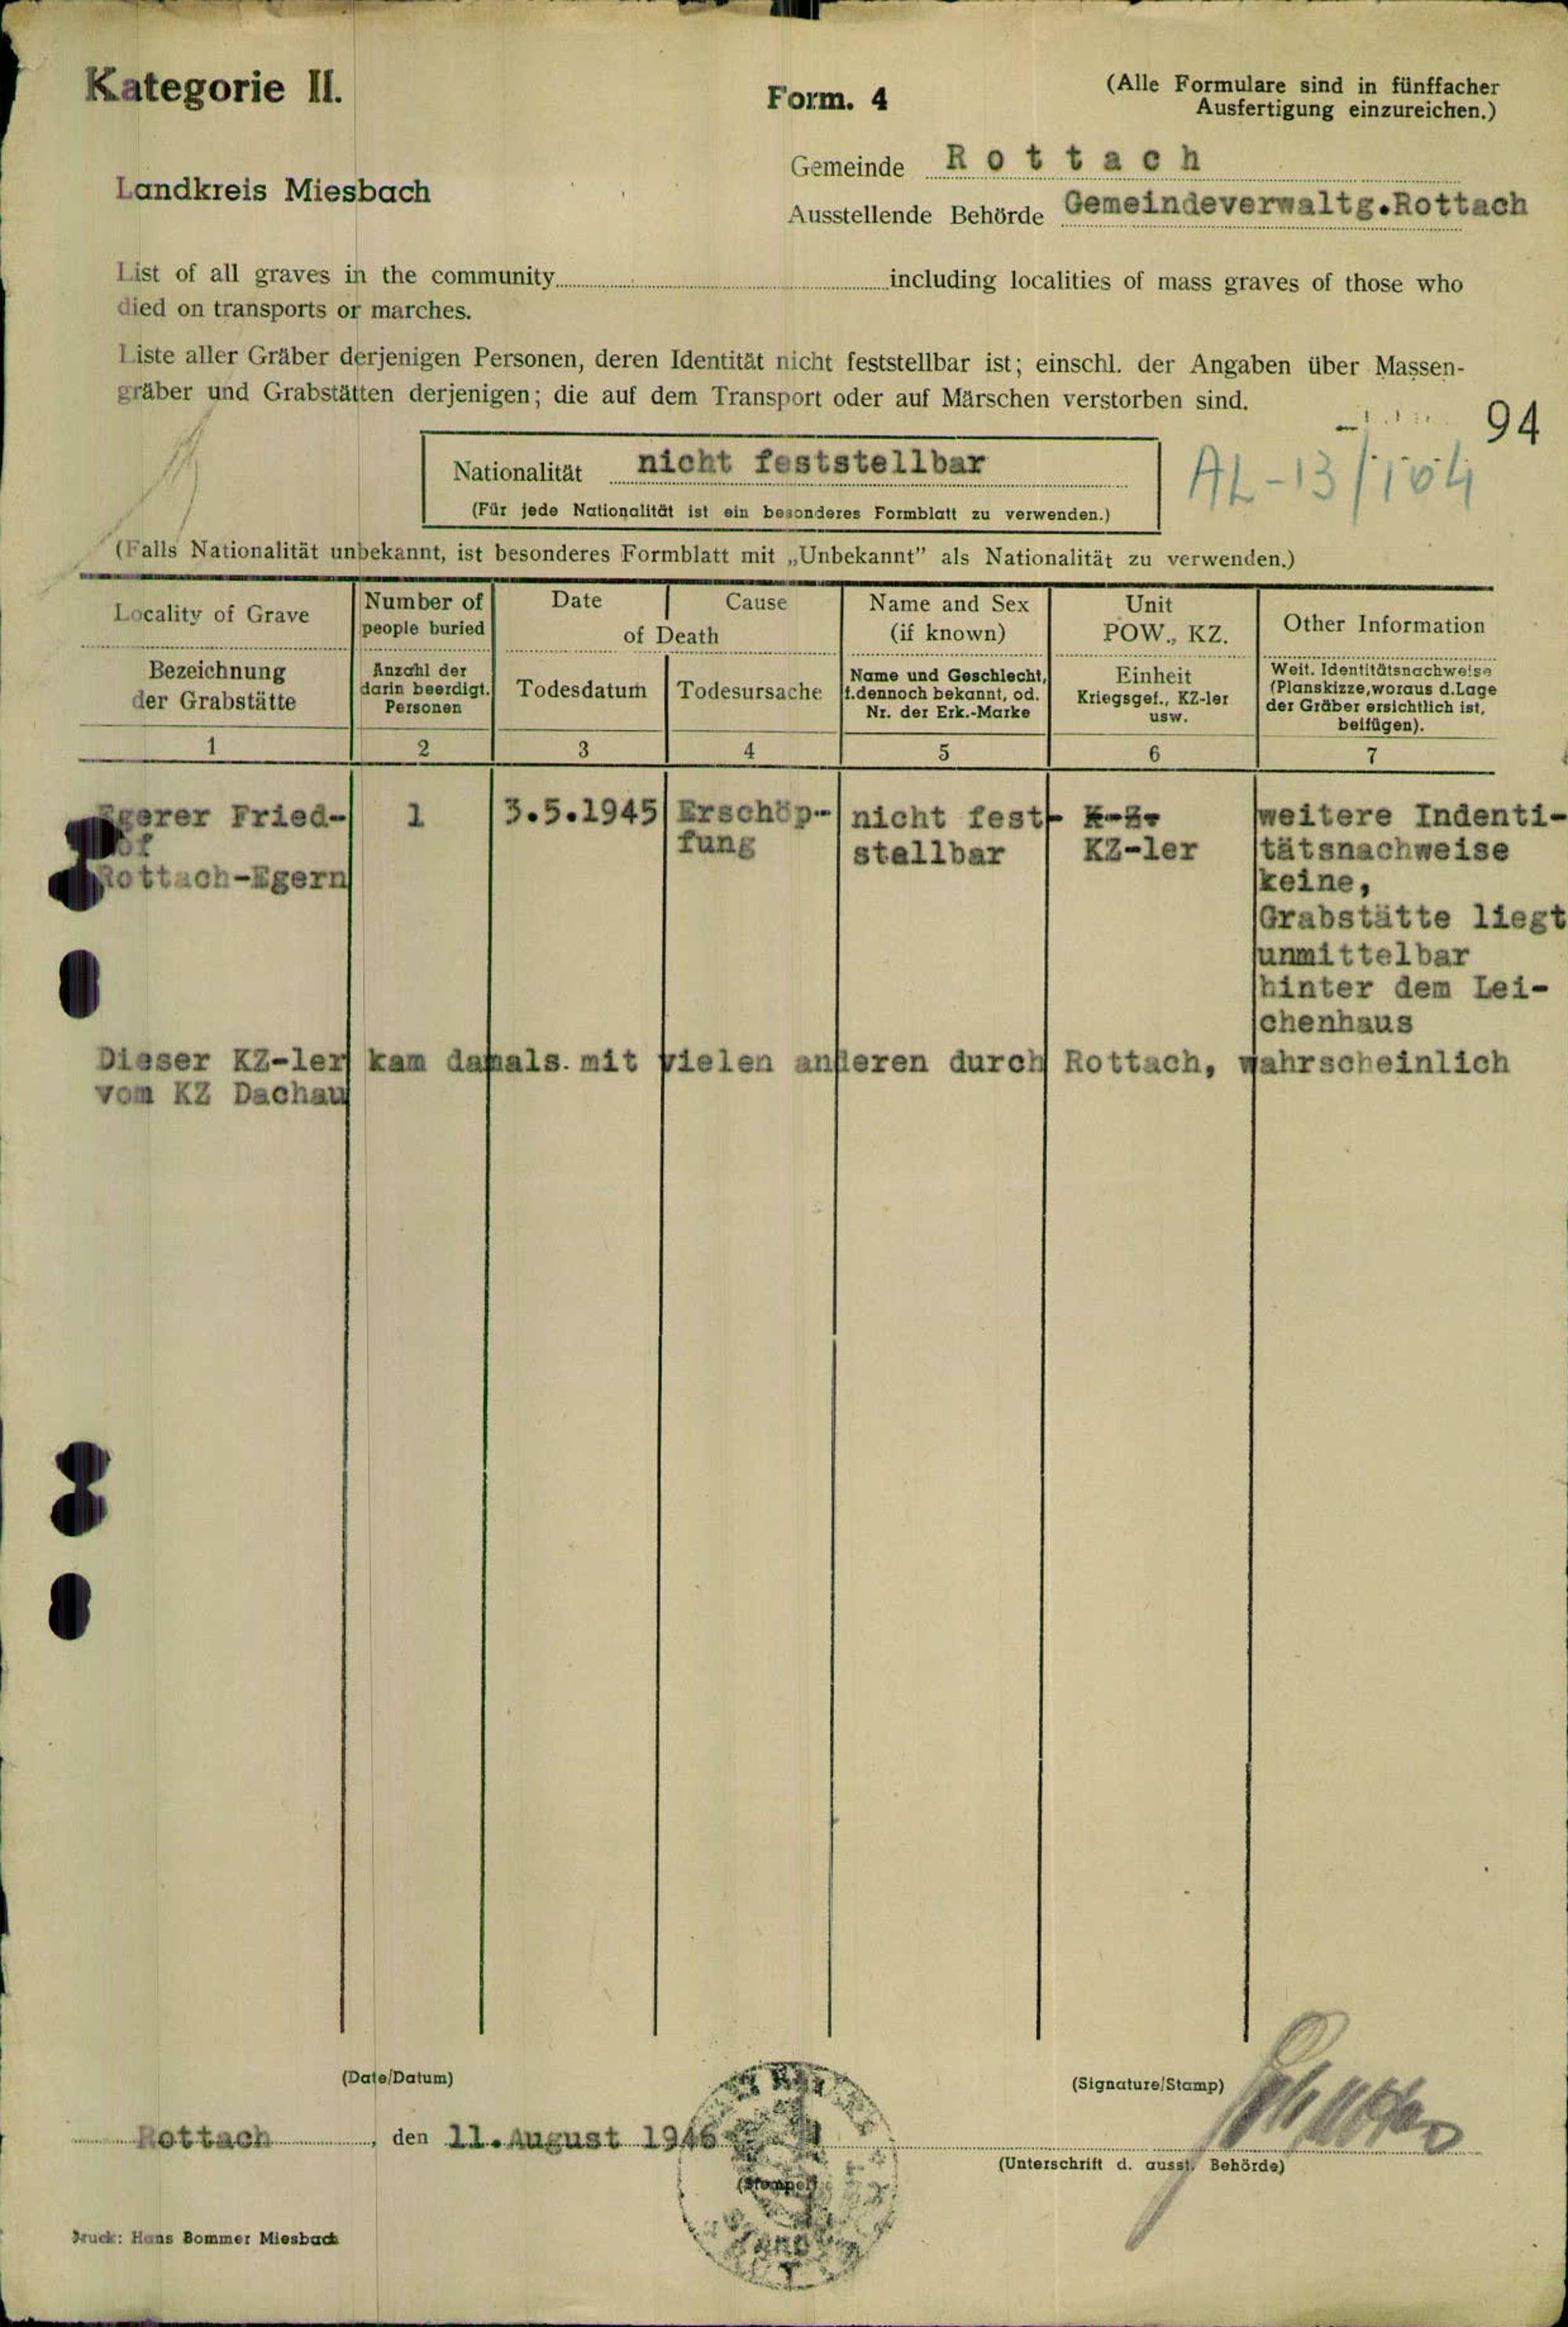 Kategorie II.
Form. 4
(Alle Formulare sind in fünffacher
Ausfertigung einzureichen.)
Gemeinde Rottach
Landkreis Miesbach
Ausstellende Behörde Gemeindeverwaltg.Rottach
List of all graves in the community including localities of mass graves of those who
died on transports or marches.
Liste aller Gräber derjenigen Personen, deren Identität nicht feststellbar ist; einschl. der Angaben über Massen-
gräber und Grabstätten derjenigen; die auf dem Transport oder auf Märschen verstorben sind.
94
Nationalität nicht feststellbar
AL-13/104
(Für jede Nationalität ist ein besonderes Formblatt zu verwenden.)
(Falls Nationalität unbekannt, ist besonderes Formblatt mit „Unbekannt" als Nationalität zu verwenden.)
Locality of Grave
Bezeichnung
der Grabstätte
1
Number of
people buried
Anzahl der
darin beerdigt.
Personen
2
Date
Cause
of Death
Todesdatum
3
Todesursache
4
Name and Sex
(if known)
Name und Geschlecht,
f.dennoch bekannt, od.
Nr. der Erk.-Marke
5
Unit
POW., KZ.
Einheit
Kriegsgef., KZ-ler
usw.
6
Other Information
Weit. Identitätsnachweise
(Planskizze,woraus d.Lage
der Gräber ersichtlich ist,
beifügen).
7
Egerer Fried-
Rottach-Egern
1
3.5.1945
Erschöp-
fung
nicht fest-
stellbar
KZ-ler
weitere Indenti-
tätsnachweise
keine,
Grabstätte liegt
unmittelbar
hinter dem Lei-
chenhaus
Dieser KZ-ler kam damals mit vielen anderen durch Rottach, wahrscheinlich
vom KZ Dachau
(Date/Datum)
(Signature/Stamp)
Rottach, den 11. August 1946
(Stempel)
(Unterschrift d. ausst. Behörde)
Druck: Hans Bommer Miesbach